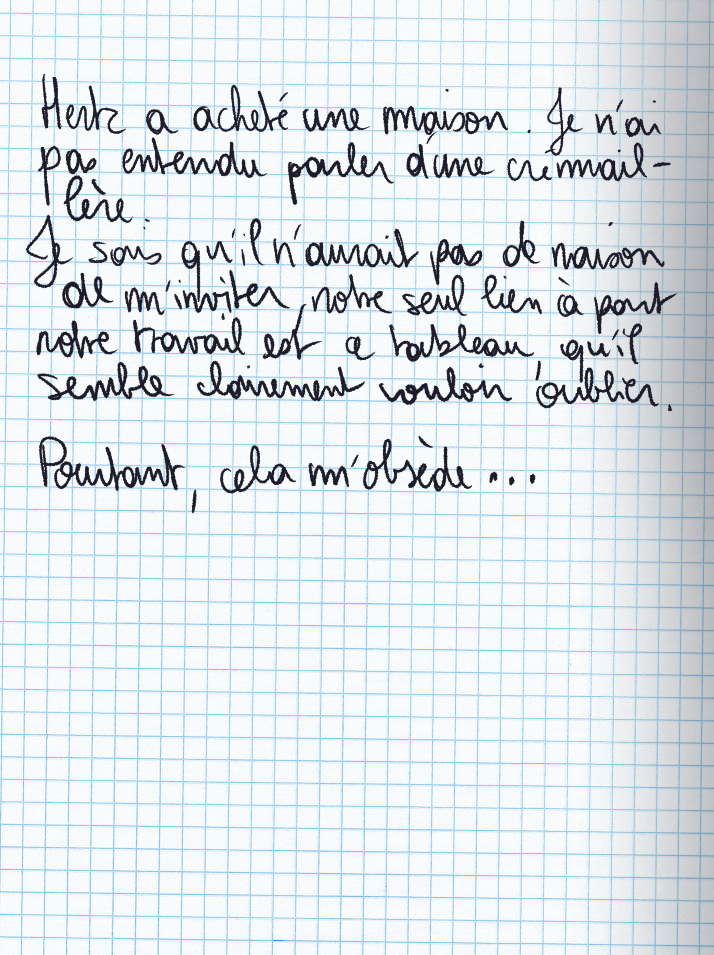 Hertz a acheté une maison. Je n'ai
pas entendu parler d'une crémail-
lère.
Je sais qu'il n'aurait pas de raison
de m'inviter, notre seul lien à part
notre travail est ce tableau, qu'il
semble clairement vouloir oublier.
Pourtant, cela m'obsède...